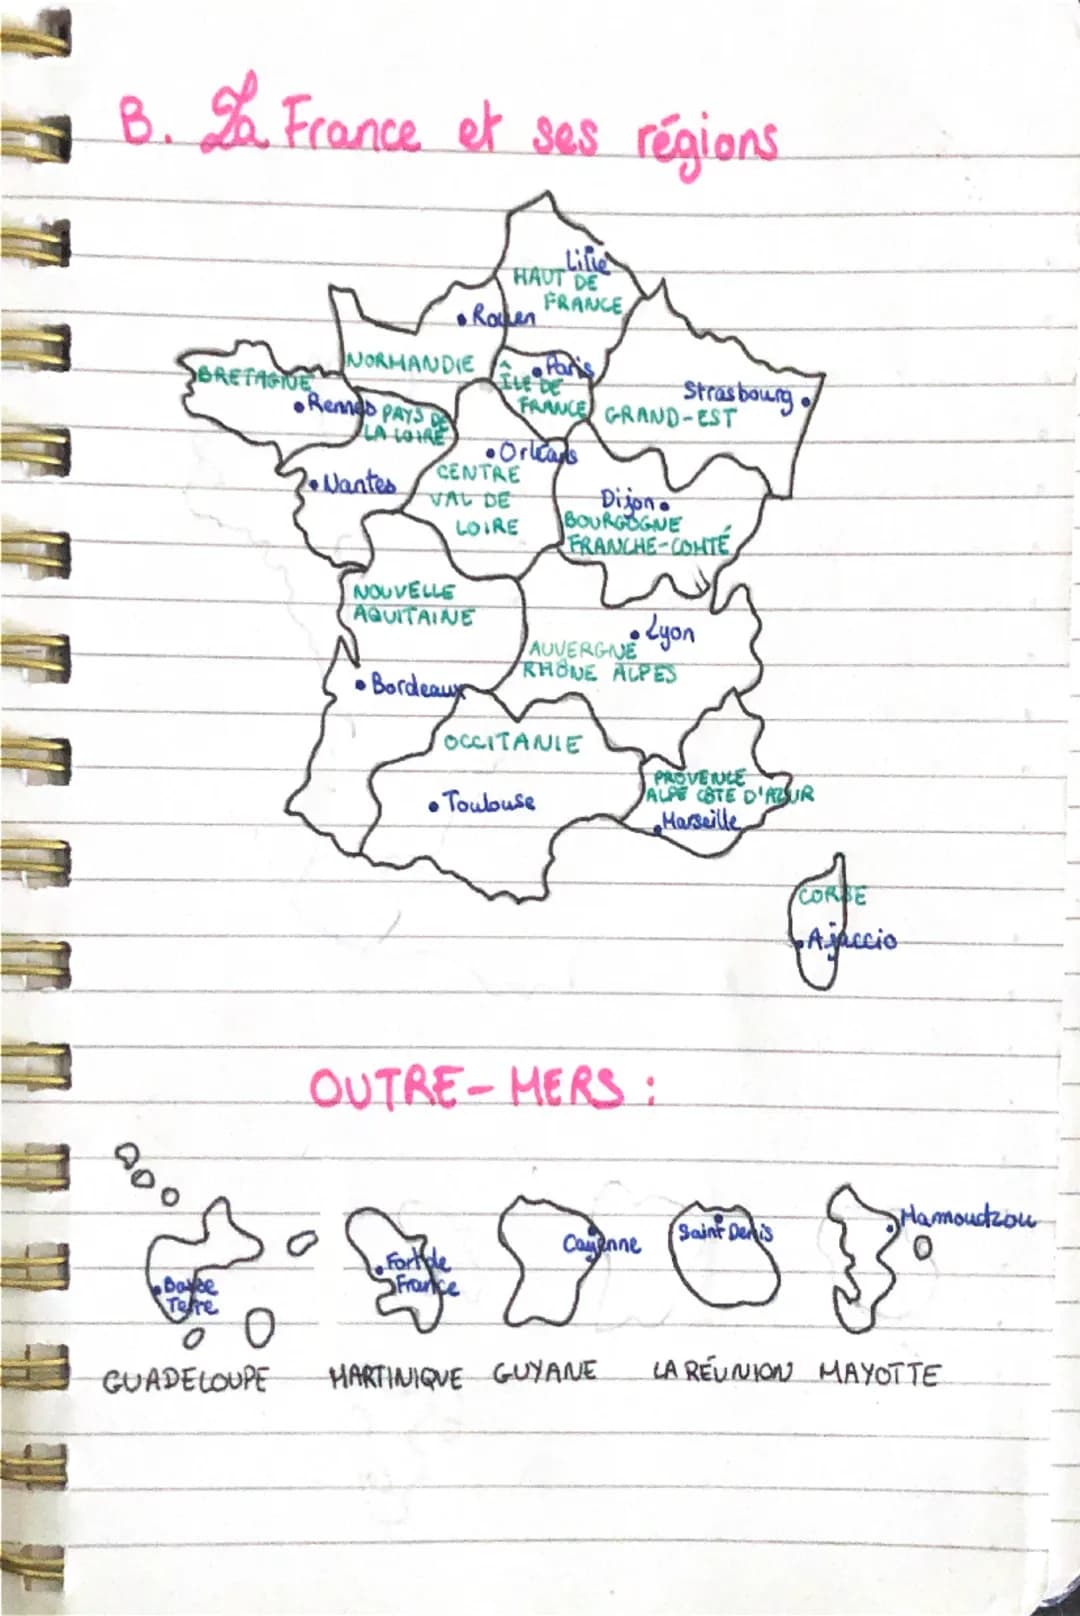 B. La France et ses régions
Lille
HAUT DE
FRANCE
Rouen
NORMANDIE
Paris
ÎLE DE
FRANCE
Strasbourg
GRAND-EST
BRETAGNE
Rennes
PAYS DE
LA LOIRE
Nantes
Orléans
CENTRE
VAL DE
LOIRE
Dijon
BOURGOGNE
FRANCHE-COMTÉ
NOUVELLE
AQUITAINE
Bordeaux
Lyon
AUVERGNE
RHÔNE ALPES
OCCITANIE
Toulouse
PROVENCE
ALPE CÔTE D'AZUR
Marseille
CORSE
Ajaccio
OUTRE-MERS :
Basse
Terre
Fort de
France
Cayenne
Saint Denis
Mamoudzou
GUADELOUPE MARTINIQUE GUYANE LA RÉUNION MAYOTTE